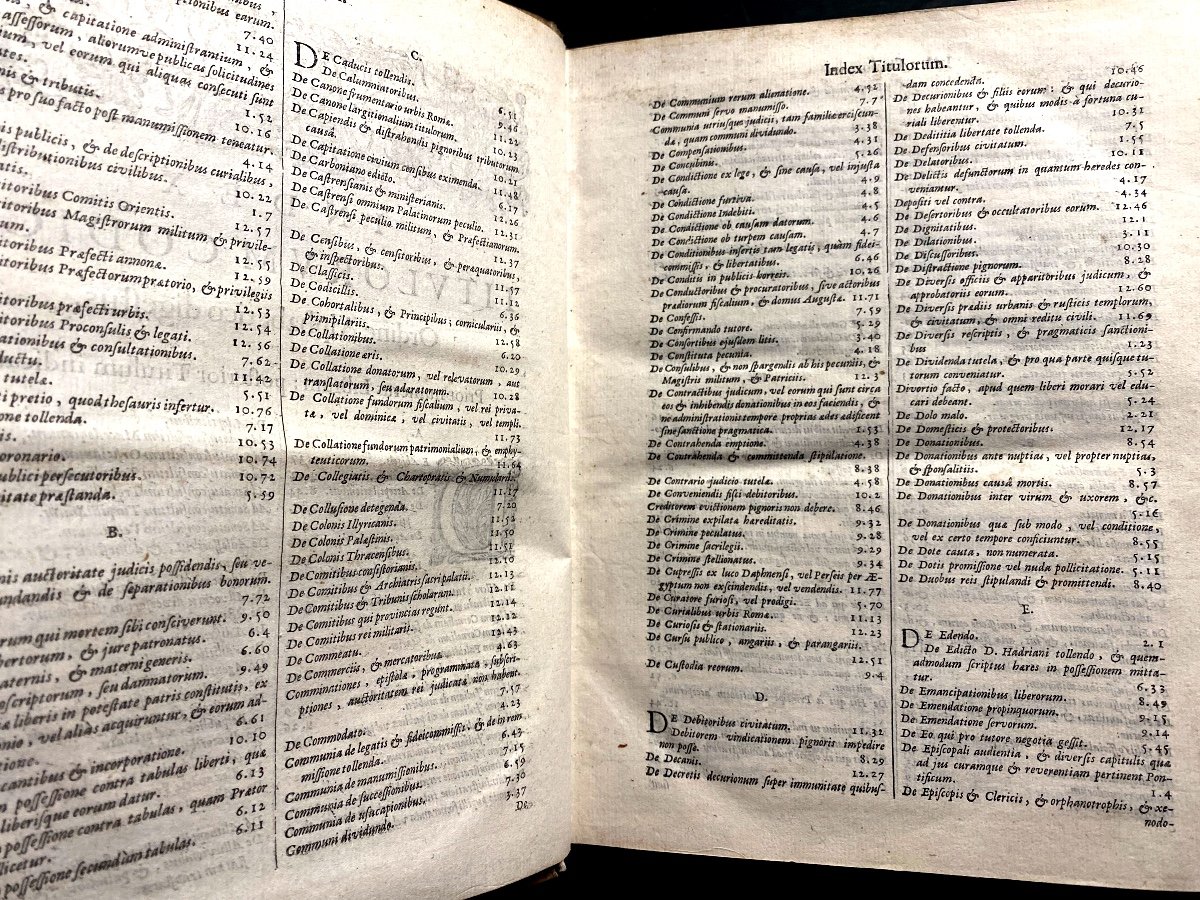 pitionibus earum.
7.40
, & capitatione adminiſtrantium, &
11.24
aſſeſſorum, aliorumve publicas ſolicitudines
vel eorum qui aliquas conſecuti ſunt
1.52
& tributis.
10.16
pro ſuo facto poſt manumiſſionem teneatur.
4.14
publicis, & de deſcriptionibus curialibus,
diſtributionibus civilibus.
10.22
Comitis Orientis.
1.7
Magiſtrorum militum & privile-
12.57
Præfecti annonæ.
12.55
Præfectorum prætorio, & privilegiis
12.59
præfecti urbis.
12.53
Proconſulis & legati.
12.54
& conſultationibus.
12.56
7.62
11.42
tutelæ.
5.51
pretio, quod theſauris infertur.
10.76
tollenda.
7.17
10.53
coronario.
10.74
publici perſecutoribus.
10.72
præſtanda.
5.59
B.
auctoritate judicis poſſidendis, ſeu ve-
& de ſeparationibus bonorum.
7.72
qui mortem ſibi conſciverunt.
9.50
& jure patronatus.
6.4
& materni generis.
6.60
ſeu damnatorum.
9.49
liberis in poteſtate patris conſtitutis, ex
vel alias acquiruntur, & eorum ad-
6.61
10.10
& incorporatione.
poſſeſſione contra tabulas liberti, quæ
liberisque eorum datur.
6.13
poſſeſſione contra tabulas, quam Prætor
6.12
6.11
poſſeſſione secundum tabulas.
C.
DE Caducis tollendis.
De Calumniatoribus.
6.51
De Canone frumentario urbis Romæ.
9.46
De Canone largitionalium titulorum.
11.23
De Capiendis & diſtrahendis pignoribus tributorum
10.23
cauſâ.
10.21
De Capitatione civium cenſibus eximenda.
11.48
De Carboniano edicto.
6.17
De Caſtrenſianis & miniſterianis.
12.26
De Caſtrenſi omnium Palatinorum peculio.
12.31
De Caſtrenſi peculio militum, & Præfectianorum.
12.37
De Cenſibus, & cenſitoribus, & peræquatoribus,
& inſpectoribus.
11.57
De Claſſicis.
11.12
De Codicillis.
6.36
De Cohortalibus, & Principibus; cornicularis, &
primipilariis.
12.58
De Collationibus.
6.20
De Collatione æris.
10.29
De Collatione donatorum, vel relevatorum, aut
tranſlatorum, ſeu adæratorum.
10.28
De Collatione fundorum fiſcalium, vel rei priva-
tæ, vel dominicæ, vel civitatis, vel templi.
11.73
De Collatione fundorum patrimonialium, & emphy-
teuticorum.
11.64
De Collegiatis & Chartopratis & Nummulariis.
11.17
De Colluſione detegenda.
7.20
De Colonis Illyricanis.
11.52
De Colonis Palæſtinis.
11.50
De Colonis Thracenſibus.
11.51
De Comitibus conſiſtorianis.
12.10
De Comitibus & Archiatris ſacri palatii.
12.13
De Comitibus & Tribunis ſcholarum.
12.11
De Comitibus qui provincias regunt.
12.14
De Comitibus rei militaris.
12.12
De Commeatu.
12.43
De Commerciis, & mercatoribus.
4.63
Comminationes, epiſtolæ, programmata, ſubſcri-
ptiones, auctoritatem rei judicatæ non habent.
7.57
De Commodato.
4.23
Communia de legatis & fideicommiſſis, & de in rem
miſſione tollenda.
6.43
Communia de manumiſſionibus.
7.15
Communia de ſucceſſionibus.
6.59
Communia de uſucapionibus.
7.30
Communi dividundo.
3.37
De
Index Titulorum.
De Communium rerum alienatione. 4.52
De Communi ſervo manumiſſo. 7.7
Communia utriusque judicii, tam familiæ erciſcun-
dæ, quam communi dividundo. 3.38
De Compenſationibus. 4.31
De Concubinis. 5.26
De Condictione ex lege, & ſine cauſa, vel injuſta
cauſa. 4.9
De Condictione furtiva. 4.8
De Condictione Indebiti. 4.5
De Condictione ob cauſam datorum. 4.6
De Condictione ob turpem cauſam. 4.7
De Conditionibus inſertis tam legatis, quàm fidei-
commiſſis, & libertatibus. 6.46
De Conditis in publicis horreis. 10.26
De Conductoribus & procuratoribus, ſive actoribus
prædiorum fiſcalium, & domus Auguſtæ. 11.71
De Confeſſis. 7.59
De Confirmando tutore. 5.29
De Conſortibus ejuſdem litis. 3.40
De Conſtituta pecunia. 4.18
De Conſulibus, & non ſpargendis ab his pecuniis, &
Magiſtris militum, & Patriciis. 12.3
De Contractibus judicum, vel eorum qui ſunt circa
eos & inhibendis donationibus in eos faciendis, &
ne adminiſtrationis tempore proprias ædes ædificent
ſine ſanctione pragmatica. 1.53
De Contrahenda emptione. 4.38
De Contrahenda & committenda ſtipulatione.
8.38
De Contrario judicio tutelæ. 4.58
De Conveniendis fiſci debitoribus. 10.2
Creditorem evictionem pignoris non debere. 8.46
De Crimine expilatæ hæreditatis. 9.32
De Crimine peculatus. 9.28
De Crimine ſacrilegii. 9.29
De Crimine ſtellionatus. 9.34
De Cupreſſis ex luco Daphnenſi, vel Perſeis per Æ-
gyptum non excindendis, vel vendendis. 11.77
De Curatore furioſi, vel prodigi. 5.70
De Curialibus urbis Romæ. 11.13
De Curioſis & ſtationariis. 12.23
De Curſu publico, angariis, & parangariis.
12.51
De Cuſtodia reorum. 9.4
D.
DE Debitoribus civitatum. 11.32
Debitorem vindicationem pignoris impedire
non poſſe. 8.29
De Decanis. 12.27
De Decretis decurionum ſuper immunitate quibus-
dam concedenda. 10.46
De Decurionibus & filiis eorum: & qui decurio-
nes habeantur, & quibus modis à fortuna cu-
riali liberentur. 10.31
De Dedititia libertate tollenda. 7.5
De Defenſoribus civitatum. 1.55
De Delatoribus. 10.11
De Delictis defunctorum in quantum heredes con-
veniamur. 4.17
Depoſiti vel contra. 4.34
De Deſertoribus & occultatoribus eorum. 12.46
De Dignitatibus. 12.1
De Dilationibus. 3.11
De Diſcuſſoribus. 10.30
De Diſtractione pignorum. 8.28
De Diverſis officiis & apparitoribus judicum, &
approbatoriis eorum. 12.60
De Diverſis prædiis urbanis & ruſticis templorum,
& civitatum, & omni reditu civili. 11.69
De Diverſis reſcriptis, & pragmaticis ſanctioni-
bus 1.23
De Dividenda tutela, & pro qua parte quiſque tu-
torum conveniatur. 5.52
Divortio facto, apud quem liberi morari vel edu-
cari debeant. 5.24
De Dolo malo. 2.21
De Domeſticis & protectoribus. 12.17
De Donationibus. 8.54
De Donationibus ante nuptias, vel propter nuptias,
& ſponſalitiis. 5.3
De Donationibus cauſâ mortis. 8.57
De Donationibus inter virum & uxorem, &c.
5.16
De Donationibus quæ ſub modo, vel conditione,
vel ex certo tempore conficiuntur. 8.55
De Dote cauta, non numerata. 5.15
De Dotis promiſſione vel nuda pollicitatione. 5.11
De Duobus reis ſtipulandi & promittendi. 8.40
E.
DE Edendo. 2.1
De Edicto D. Hadriani tollendo, & quem-
admodum ſcriptus hæres in poſſeſſionem mitta-
tur. 6.33
De Emancipationibus liberorum. 8.49
De Emendatione propinquorum. 9.15
De Emendatione ſervorum. 9.14
De Eo qui pro tutore negotia geſſit. 5.45
De Epiſcopali audientia, & diverſis capitulis quæ
ad jus curamque & reverentiam pertinent Pon-
tificum. 1.4
De Epiſcopis & Clericis, & orphanotrophis, & xe-
nodo-